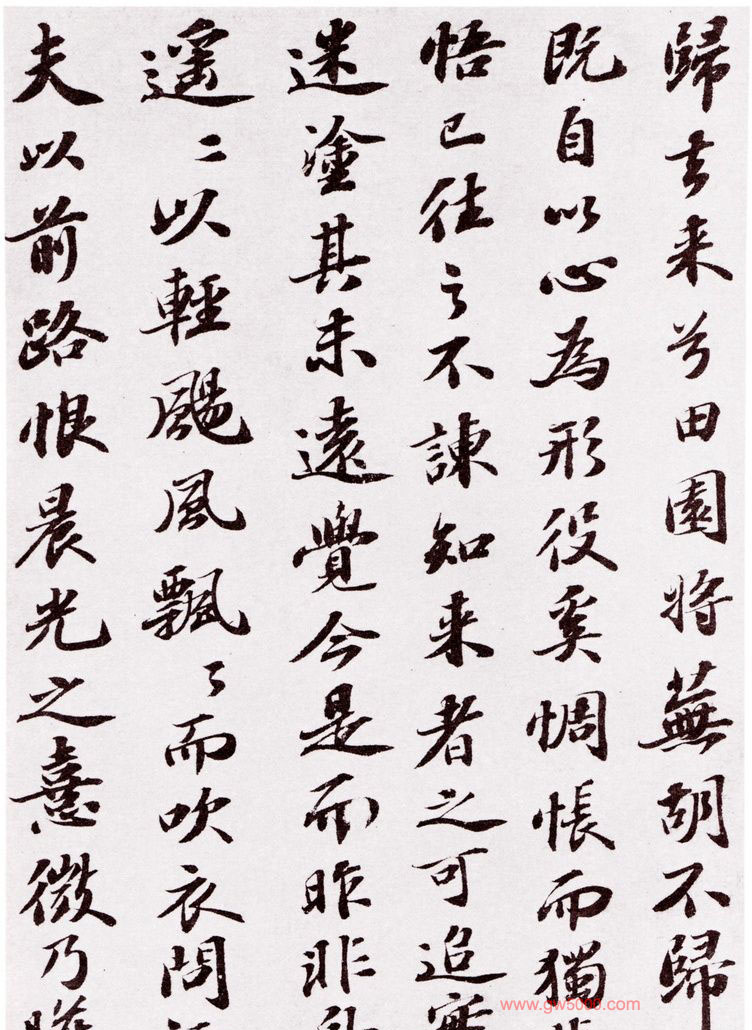 歸去来兮田園将蕪胡不歸
既自以心為形役奚惆悵而獨
悟已往之不諫知来者之可追
迷塗其未遠覺今是而昨非
遥〻以輕颺風飄〻而吹衣問
夫以前路恨晨光之熹微乃
www.gw5000.com